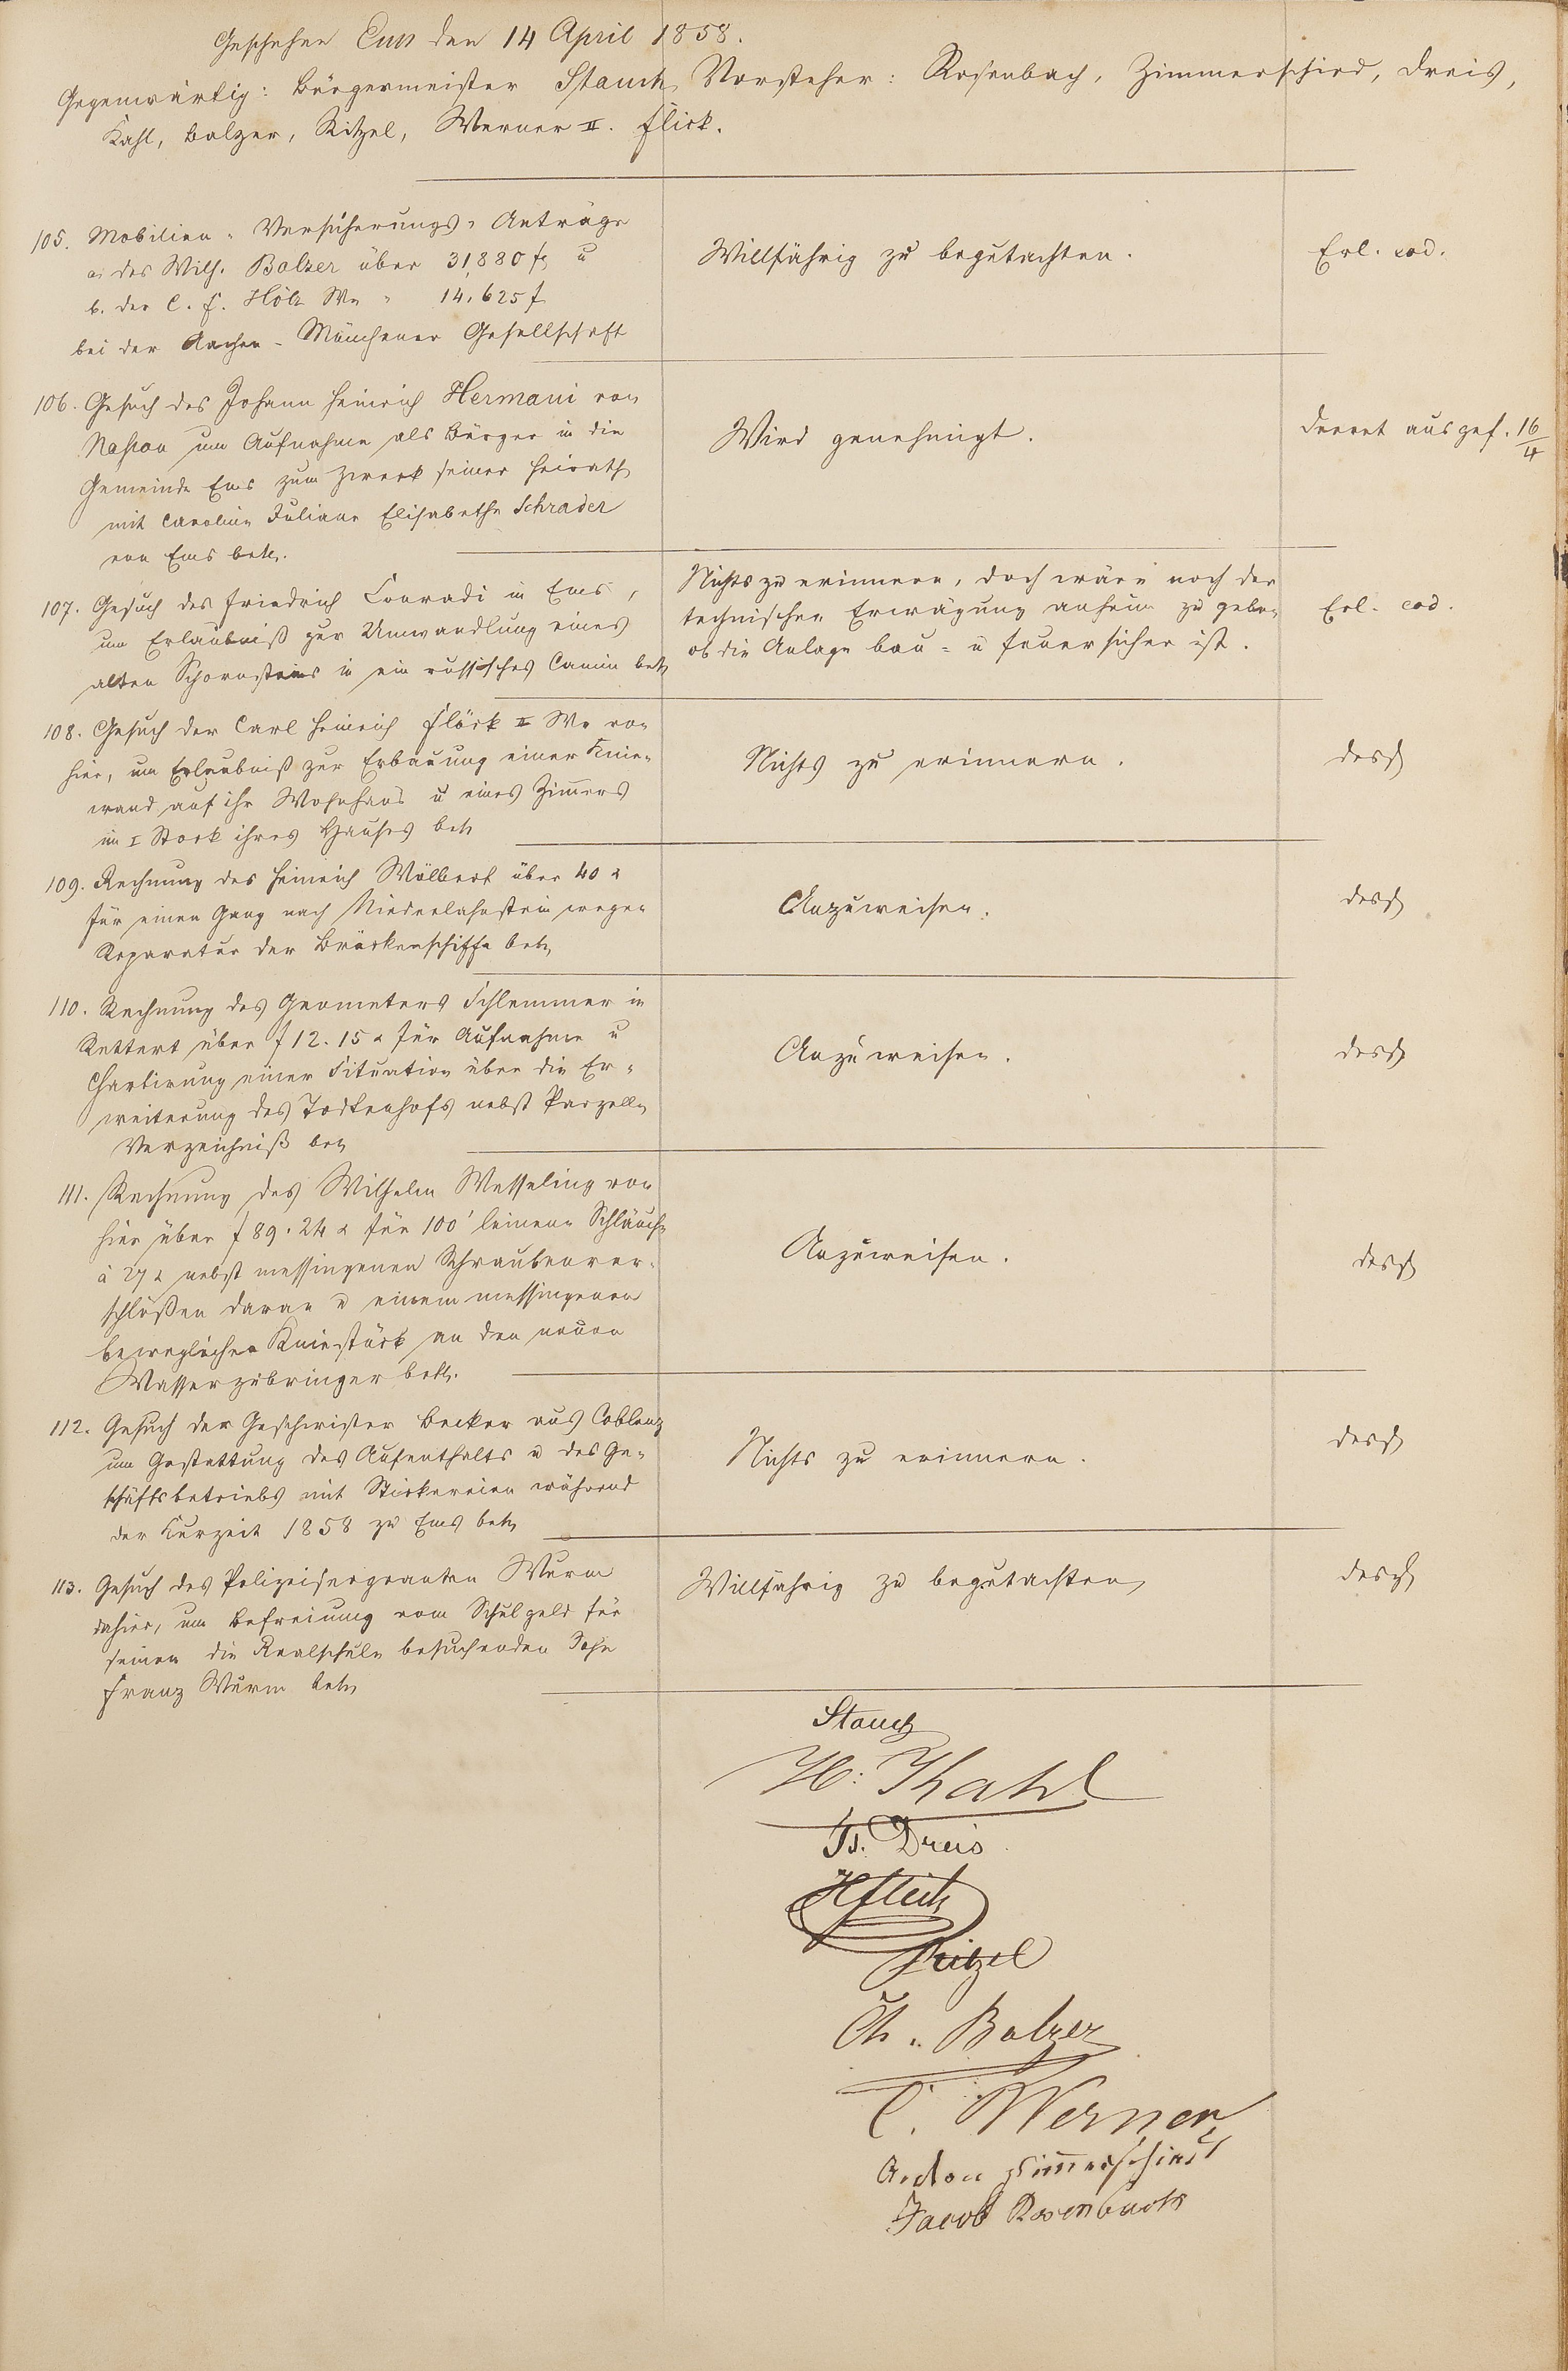 Geschehen Ems den 14 April 1858.
Gegenwärtig: Bürgermeister Stauch, Vorsteher: Rosenbach, Zimmerschied, Dreis,
Kahl, Balzer, Ritzel, Werner II. Flick.
105. Mobilien-Versicherungs-Anträge
a. des Wilh. Balzer über 31,880 f u
b. der C. F. Höln We " 14.625 f
bei der Aachen-Münchener Gesellschaft
Willfährig zu begutachten.
Erl. eod.
106. Gesuch des Johann Heinrich Hermani von
Nassau um Aufnahme als Bürger in die
Gemeinde Ems zum Zweck seiner Heirath
mit Caroline Juliane Elisabethe Schrader
von Ems betr.
Wird genehmigt.
Decret ausgef. 16/4
107. Gesuch des Friedrich Conradi in Ems,
um Erlaubniß zur Umwandlung eines
alten Schornsteins in ein russisches Camin betr
Nichts zu erinnern, doch wäre noch der
technischen Erwägung anheim zu geben,
ob die Anlage bau- u feuersicher ist.
Erl. eod.
108. Gesuch der Carl Heinrich Flöck II We von
hier, um Erlaubniß zur Erbauung einer Knie-
wand auf ihr Wohnhaus u eines Zimmers
im I Stock ihres Hauses betr
Nichts zu erinnern.
desgl
109. Rechnung des Heinrich Wölbert über 40 x
für einen Gang nach Niederlahnstein wegen
Reparatur der Brückenschiffe betr
Anzuweisen.
desgl
110. Rechnung des Geometers Schlemmer in
Kettert über f 12. 15 x für Aufnahme u
Chartirung einer Situation über die Er-
weiterung des Todtenhofs nebst Parzellen
Verzeichniß betr
Anzuweisen.
desgl
111. Rechnung des Wilhelm Wesseling von
hier über f 89. 24 x für 100' leinene Schläuche
à 27 x nebst messingenen Schraubenver-
schlüßen daran u einem messingenen
beweglichen Kniestück an den neuen
Wasserzubringer betr.
Anzuweisen.
desgl
112. Gesuch der Geschwister Becker aus Coblenz
um Gestattung des Aufenthalts u des Ge-
schäftsbetriebs mit Stickereien während
der Kurzeit 1858 zu Ems betr
Nichts zu erinnern.
desgl
113. Gesuch des Polizeisergeanten Wurm
dahier, um Befreiung vom Schulgeld für
seinen die Realschule besuchenden Sohn
Franz Wurm betr
Willfahrig zu begutachten
desgl
Stauch
H: Kahl
Dreis
HFlick
Ritzel
Ch. Balzer
C. Werner
Anton Zimmerschied
Jacob Rosenbach